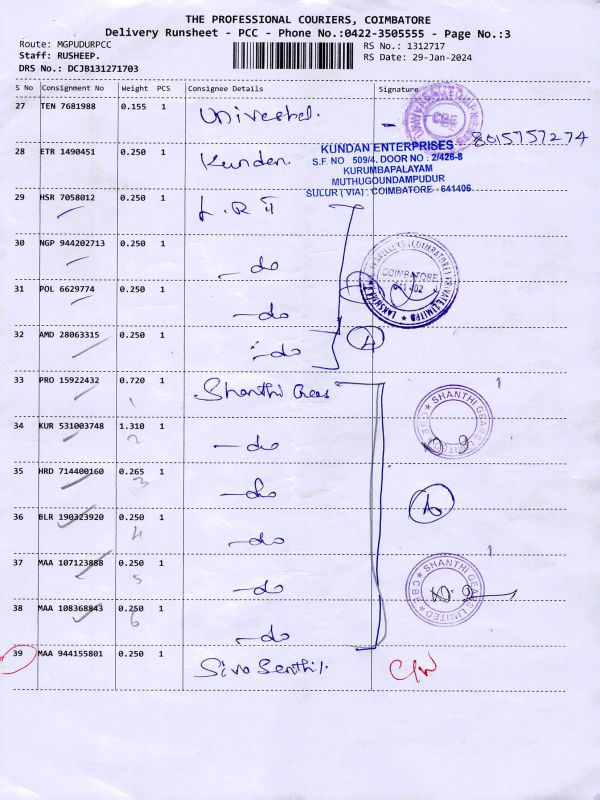 THE PROFESSIONAL COURIERS, COIMBATORE
Delivery Runsheet - PCC - Phone No.:0422-3505555 - Page No.:3
Route: MGPUDURPCC RS No.: 1312717
Staff: RUSHEEP. RS Date: 29-Jan-2024
DRS No.: DCJB131271703
S No Consignment No Weight PCS Consignee Details Signature
27 TEN 7681988 0.155 1 Universal. 8015757274
28 ETR 1490451 0.250 1 Kunden.
KUNDAN ENTERPRISES
S.F. NO 509/4, DOOR NO : 2/426-8
KURUMBAPALAYAM
MUTHUGOUNDAMPUDUR
SULUR (VIA) : COIMBATORE - 641406
29 HSR 7058012 0.250 1
30 NGP 944202713 0.250 1 - do
COIMBATORE
31 POL 6629774 0.250 1 - do
32 AMD 28063315 0.250 1 - do
33 PRO 15922432 0.720 1 Shanthi Gears
1
34 KUR 531003748 1.310 1 - do
2
SHANTHI GEARS LIMITED
35 HRD 714400160 0.265 1 - do
3
36 BLR 190323920 0.250 1 - do
4
37 MAA 107123888 0.250 1 - do
5
SHANTHI GEARS LIMITED
38 MAA 108368843 0.250 1 - do
6
39 MAA 944155801 0.250 1 Siva Senthil.